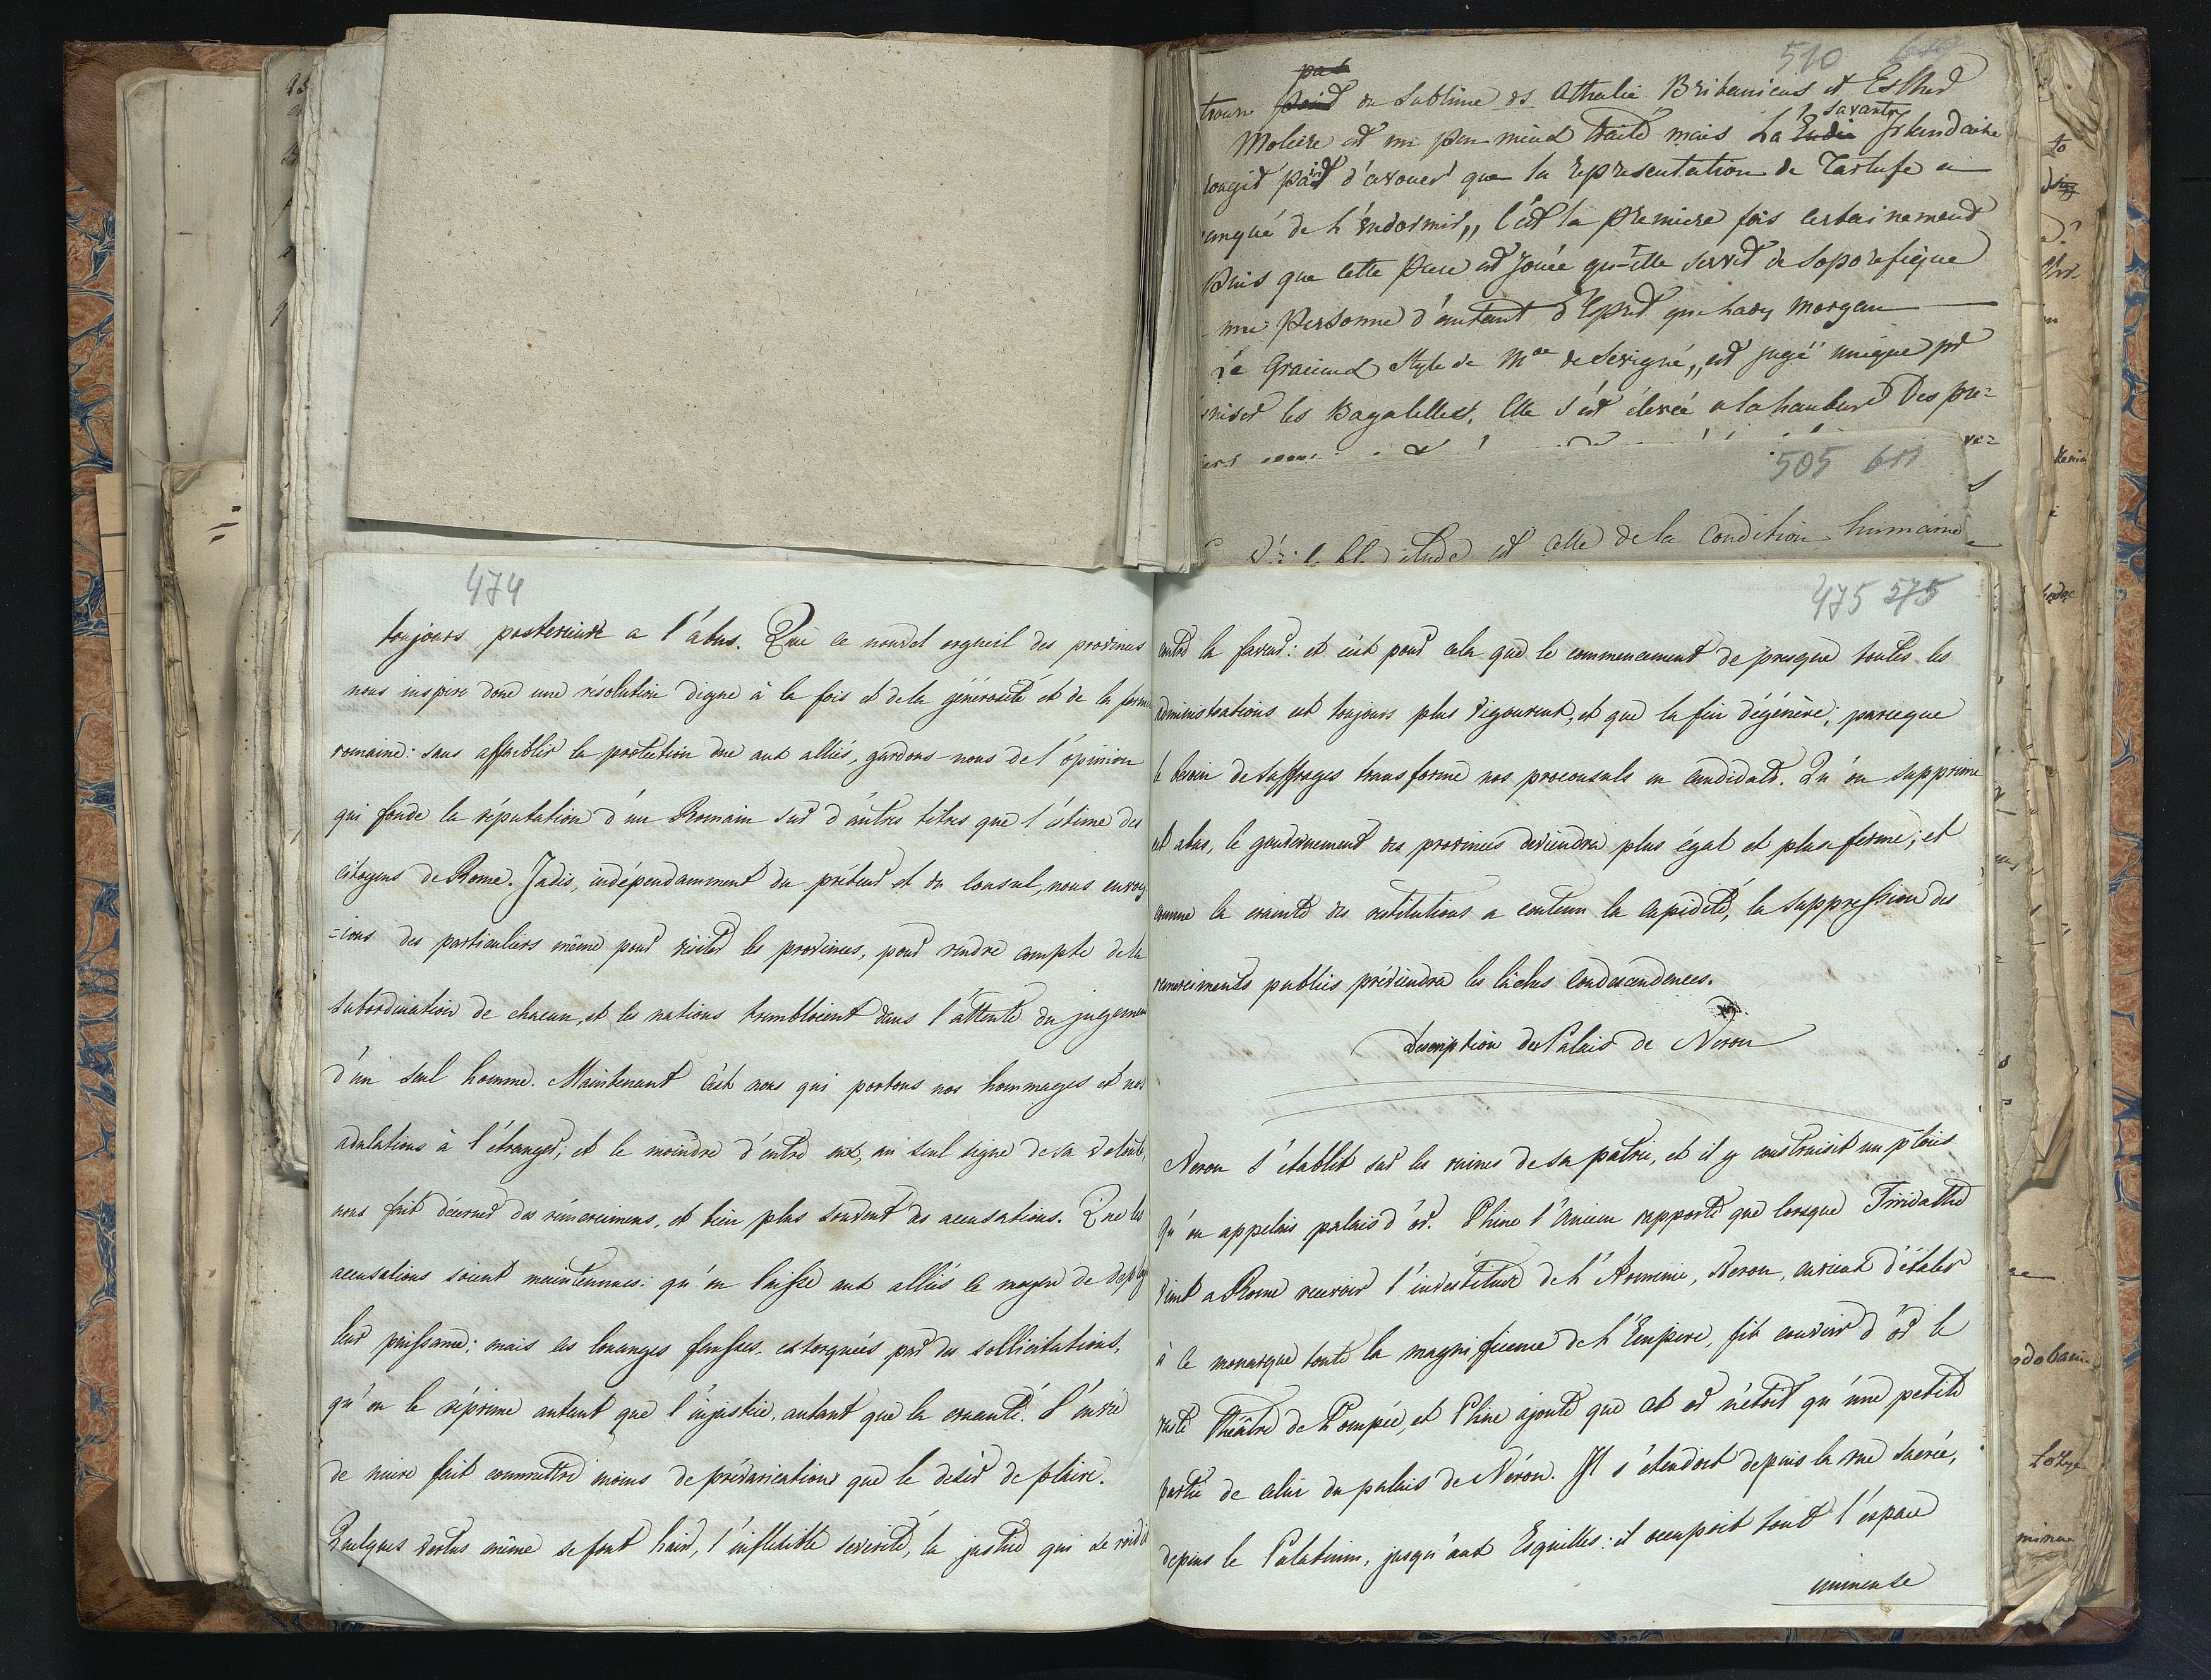 510
pas
trouve point du sublime ds Athalie Britanicus et Esther
Moliere est un peu mieux traité mais La savante Irlandaise
rougit point d'avouer que la représentation de Tartufe a
manqué de l'éndormir,, C'est la première fois certainement
puis que cette piece est jouée qu'elle servit de soporifique
une personne d'autant d'Esprit que Lady Morgan
Le Gracieux Style de Mme de Sevigné,, est jugé unique pr
les Bagatelles, Elle s'est élevée a la hauteur Des pre=
505 611
étude est celle de la Condition humaine
474
toujours posterieure a l'abus. Que ce nouvel orgueil des provinces
nous inspire donc une résolution digne à la fois et de la générosité et de la ferme
romaine: sans affaiblir la protection due aux alliés, gardons-nous de l'opinion
qui fonde la réputation d'un Romain sur d'autres titres que l'éstime des
citoyens de Rome. Jadis, indépendamment du préteur et du Consul, nous envoy
=ions des particuliers même pour visiter les provinces, pour rendre compte de la
subordination de chacun, et les nations trembloient dans l'attente du jugemen
d'un seul homme. Maintenant c'est nous qui portons nos hommages et nos
adulations à l'étranger; et le moindre d'entre eux, au seul signe de sa volonté,
nous fait décerner des rémercimens, et bien plus souvent des accusations. Que les
accusations soient maintennues: qu'on laisse aux alliés ce moyen de deploy
leur puissance: mais les louanges fausses. extorquées par des sollicitations,
qu'on le réprime autant que l'injustice, autant que la cruauté. L'envie
de nuire fait commettre moins de prévarications que le desir de plaire.
Quelques vertus même se font haïr, l'inflexible sévérité, la justice qui se roidit
475 575
contre la faveur: et c'est pour cela que le commencement de presque toutes les
administrations est toujours plus vigoureux, et que la fin dégénère; parceque
le besoin de suffrages transforme nos proconsuls en Candidats. Qu'on supprime
cet abus, le gouvernement des provinces deviendra plus égal et plus ferme; et
comme la crainte des restitutions a contenu la cupidité, la suppression des
remerciments publics préviendra les lâches condescendences.
Description des Palais de Neron
Neron s'établit sur les ruines de sa patrie, et il y construisit un p̄lais
qu'on appelais palais d'or. Pline l'Ancien rapporte que lorsque Tiridathe
vint a Rome recevoir l'investiture de l'Armenie, Neron, curieux d'étaler
à ce monarque toute la magnificence de l'Empire, fit couvrir d'or le
vaste Théâtre de Pompée, et Pline ajoute que cet or n'étoit qu'une petite
partie de celui du palais de Néron. Il s'étendoit depuis la rue sacrée,
depuis le Palatinum, jusqu'aux Esquilles: il occupoit tout l'espace
immense